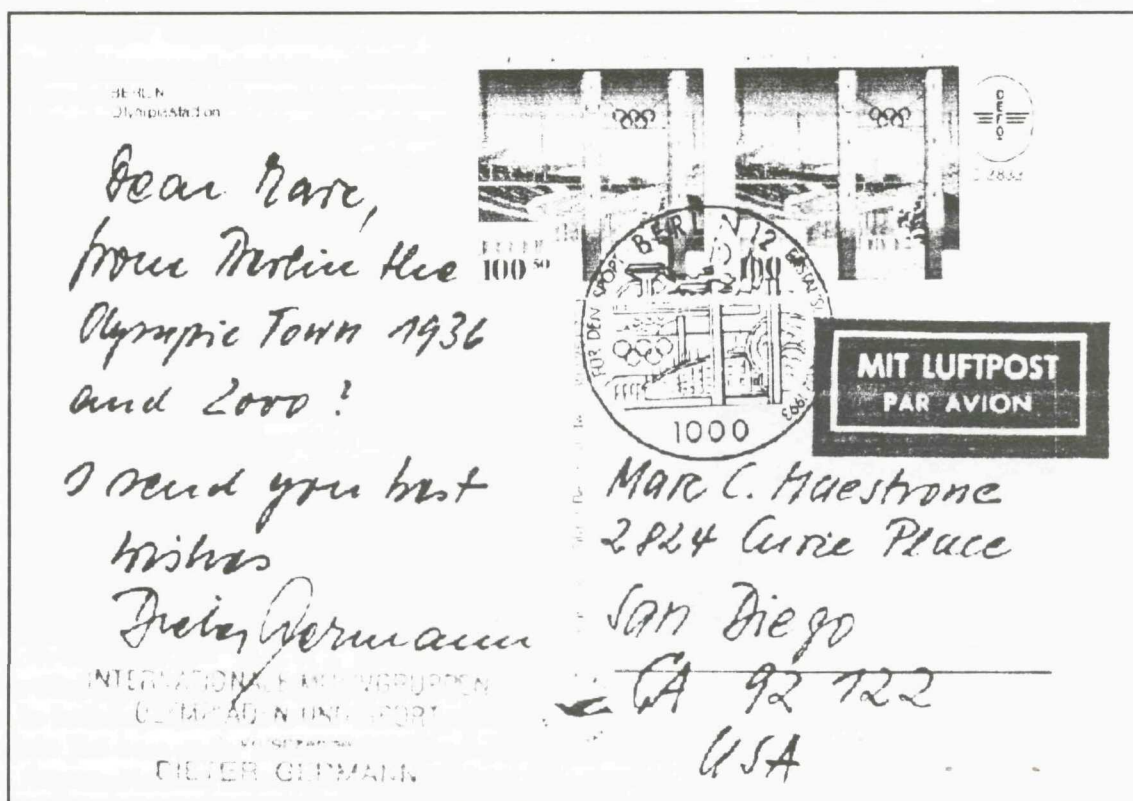 BERLIN
Olympiastadion
Dear Marc,
from Berlin the
Olympic Town 1936
and 2000?
I send you best
wishes
Dieter Germann
INTERNATIONALE MOTIVGRUPPEN
OLYMPIADEN UND SPORT
DIETER GERMANN
100 50
DEFO
BERLIN 12
FÜR DEN SPORT
1993
1000
MIT LUFTPOST
PAR AVION
Marc C. Maestrone
2824 Curie Place
San Diego
CA 92 122
USA